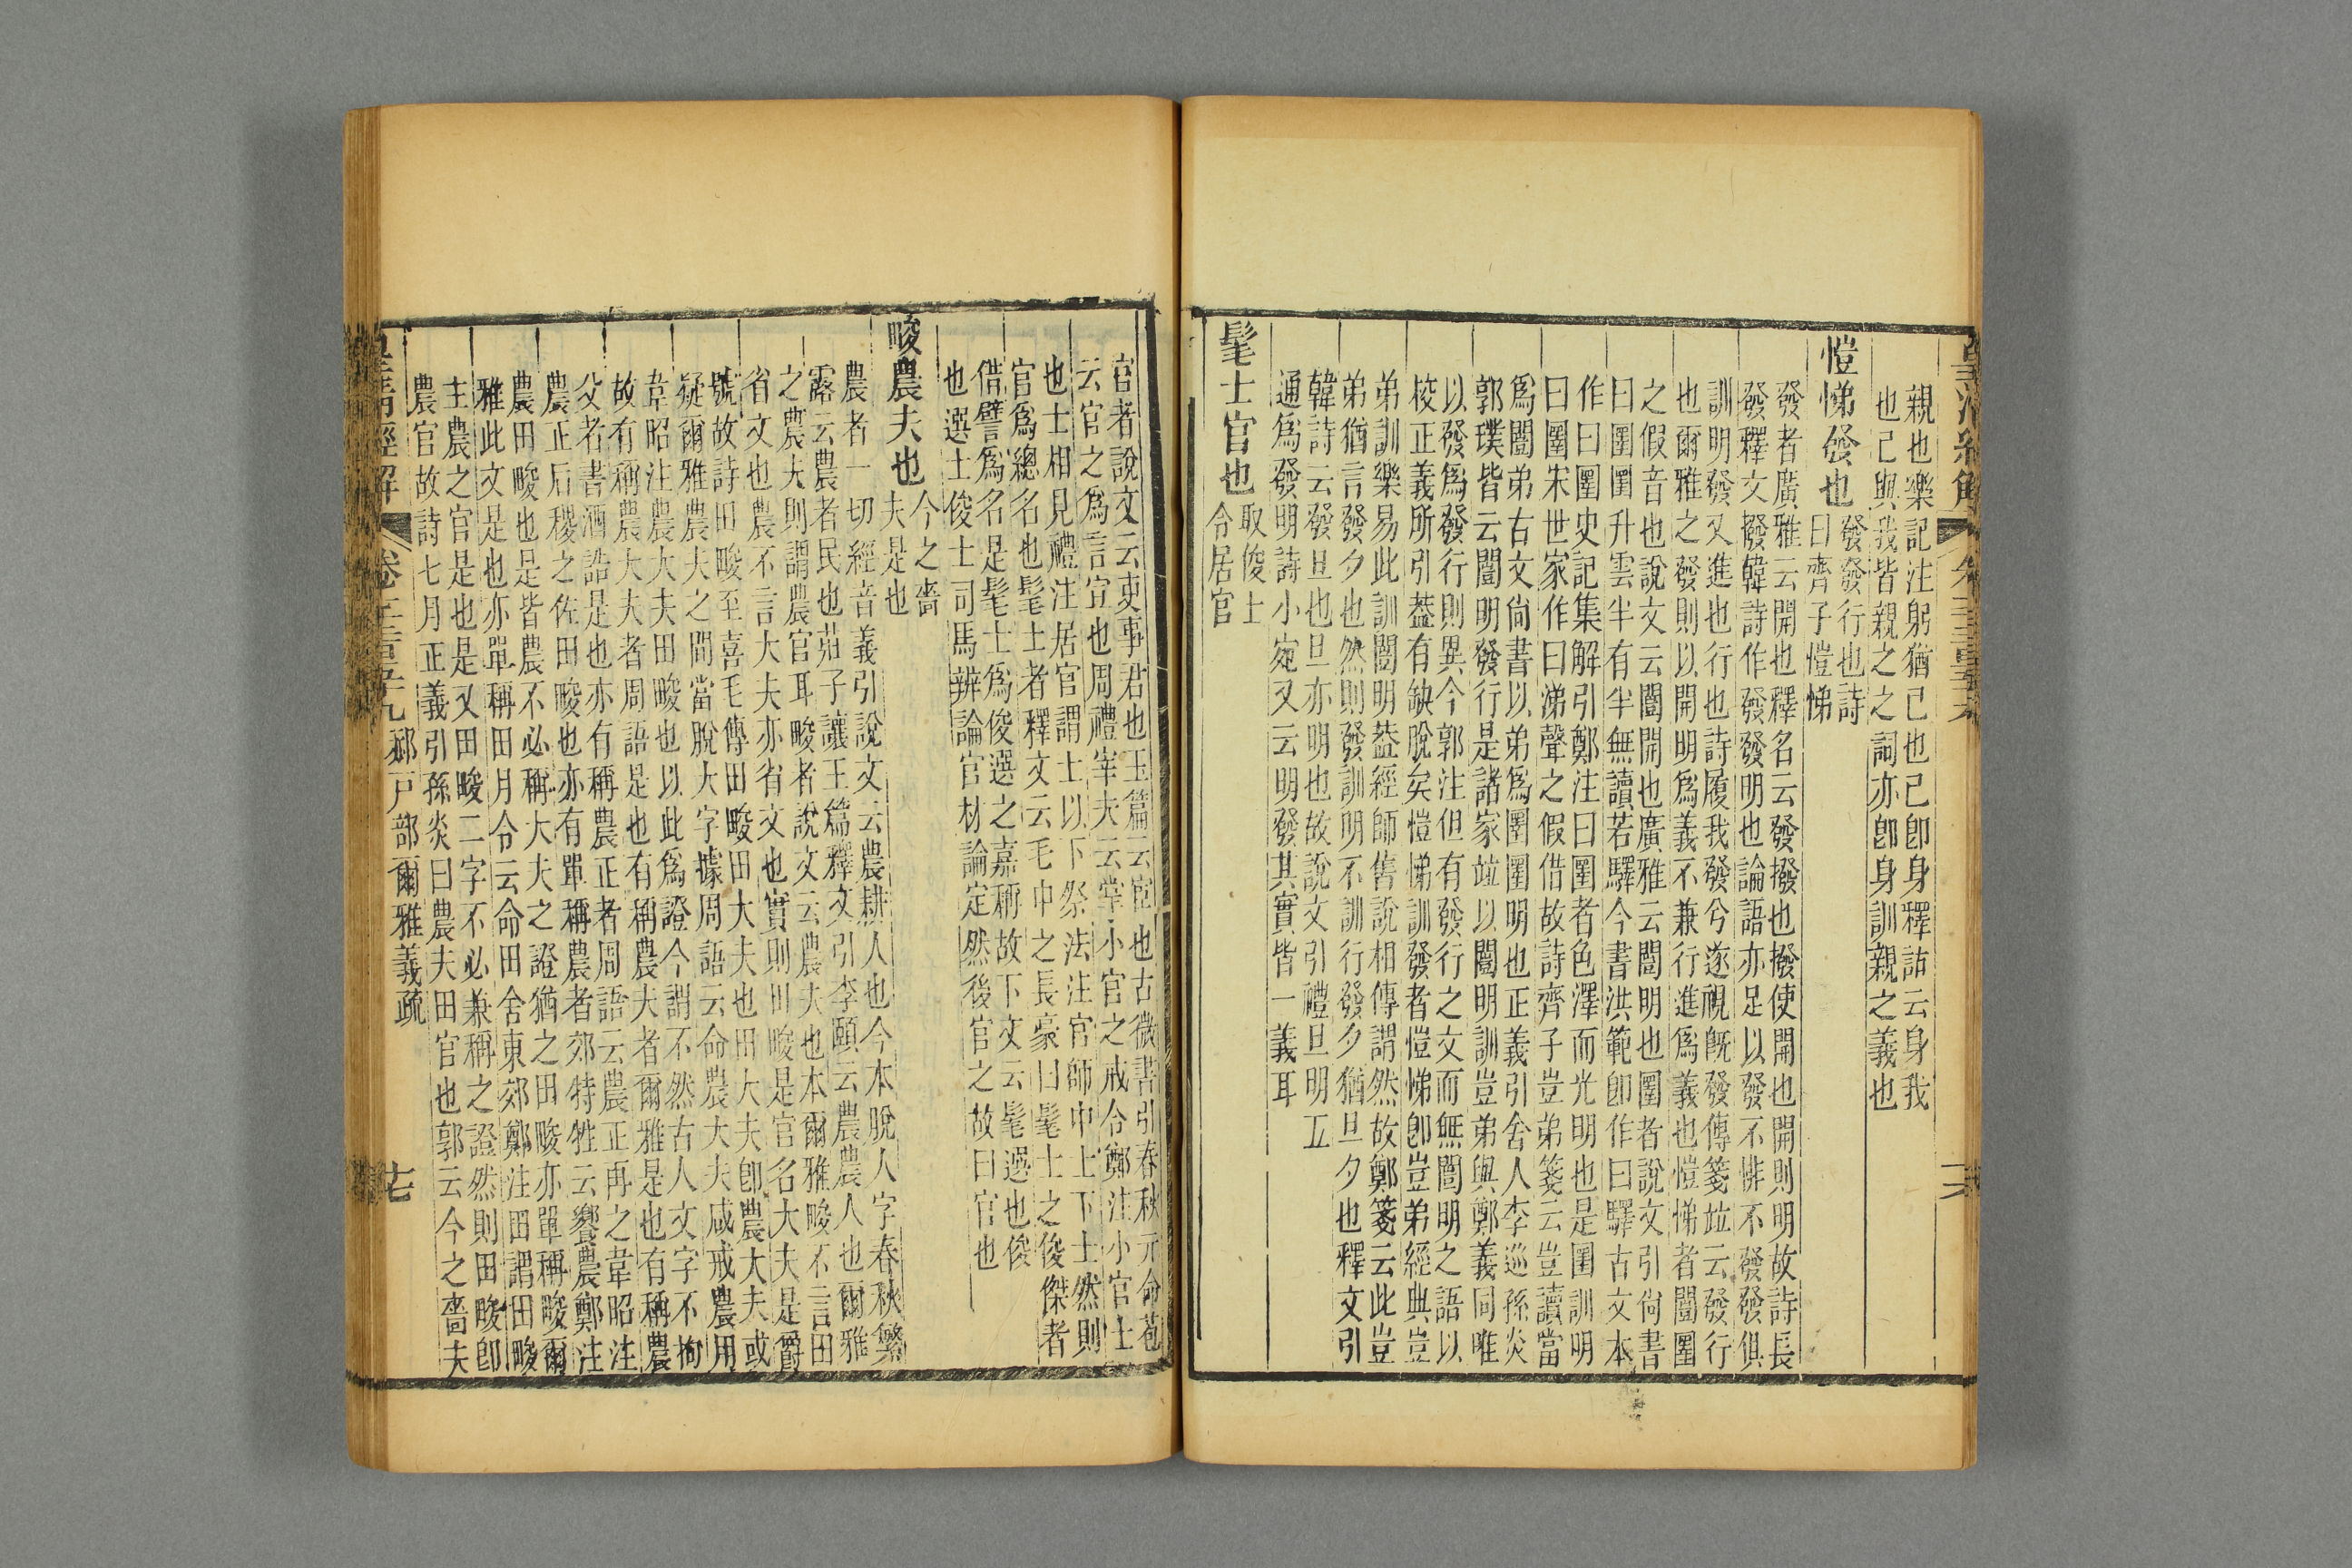 親也樂記注躬猶己也己卽身釋詁云身我
也己與我皆親之之詞亦卽身訓親之義也
愷悌發也
發發行也詩
曰齊子愷悌
發者廣雅云開也釋名云發撥也撥使開也開則明故詩長
發釋文撥韓詩作發發明也論語亦足以發不悱不發發俱
訓明發又進也行也詩履我發兮遂視旣發傳箋竝云發行
也爾雅之發則以開明爲義不兼行進爲義也愷悌者闓圛
之假音也說文云闓開也廣雅云闓明也圛者說文引尙書
曰圛圛升雲半有半無讀若驛今書洪範卽作曰驛古文本
作曰圛史記集解引鄭注曰圛者色澤而光明也是圛訓明
曰圛宋世家作曰涕聲之假借故詩齊子豈弟箋云豈讀當
爲闓弟古文尙書以弟爲圛圛明也正義引舍人李巡孫炎
郭璞皆云闓明發行是諸家竝以闓明訓豈弟與鄭義同唯
以發爲發行則異今郭注但有發行之文而無闓明之語以
校正義所引葢有缺脫矣愷悌訓發者愷悌卽豈弟經典豈
弟訓樂易此訓闓明葢經師舊說相傳謂然故鄭箋云此豈
弟猶言發夕也然則發訓明不訓行發夕猶旦夕也釋文引
韓詩云發旦也旦亦明也故說文引禮旦明五
通爲發明詩小宛又云明發其實皆一義耳
髦士官也
取俊士
令居官
官者說文云吏事君也玉篇云宦也古微書引春秋元命苞
云官之爲言宣也周禮宰夫云掌小官之戒令鄭注小官士
也士相見禮注居官謂士以下祭法注官師中士下士然則
官爲總名也髦士者釋文云毛中之長豪曰髦士之俊傑者
借譬爲名是髦士爲俊選之嘉稱故下文云髦選也俊
也選士俊士司馬辨論官材論定然後官之故曰官也
畯農夫也
今之嗇
夫是也
農者一切經音義引說文云農耕人也今本脫人字春秋繁
露云農者民也莊子讓王篇釋文引李頤云農農人也爾雅
之農夫則謂農官耳畯者說文云農夫也本爾雅畯不言田
省文也農不言大夫亦省文也實則田畯是官名大夫是爵
號故詩田畯至喜毛傳田畯田大夫也田大夫卽農大夫或
疑爾雅農夫之間當脫大字據周語云命農大夫咸戒農用
韋昭注農大夫田畯也以此爲證今謂不然古人文字不拘
故有稱農大夫者周語是也有稱農夫者爾雅是也有稱農
父者書酒誥是也亦有稱農正者周語云農正再之韋昭注
農正后稷之佐田畯也亦有單稱農者郊特牲云饗農鄭注
農田畯也是皆農不必稱大夫之證猶之田畯亦單稱畯爾
雅此文是也亦單稱田月令云命田舍東郊鄭注田謂田畯
主農之官是也是又田畯二字不必兼稱之證然則田畯卽
農官故詩七月正義引孫炎曰農夫田官也郭云今之嗇夫
皇淸經解 卷千二百五十九 郝戸部爾雅義疏 十七